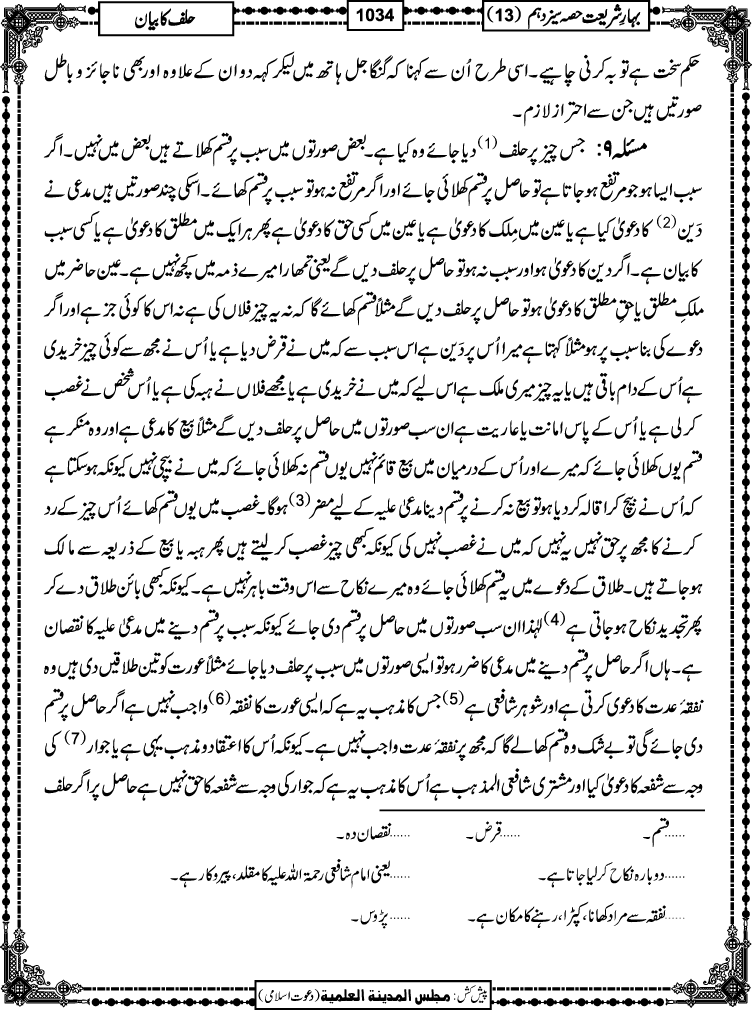 بہارِ شریعت حصہ سیزدہم (13)
1034
حلف کا بیان
حکم سخت ہے توبہ کرنی چاہیے۔ اسی طرح اُن سے کہنا کہ گنگا جل ہاتھ میں لیکر کہہ دو ان کے علاوہ اور بھی ناجائز و باطل
صورتیں ہیں جن سے احتراز لازم۔
مسئلہ ۹: جس چیز پر حلف (1) دیا جائے وہ کیا ہے۔ بعض صورتوں میں سبب پر قسم کھلاتے ہیں بعض میں نہیں۔ اگر
سبب ایسا ہو جو مرتفع ہو جاتا ہے تو حاصل پر قسم کھلائی جائے اور اگر مرتفع نہ ہو تو سبب پر قسم کھائے۔ اسکی چند صورتیں ہیں مدعی نے
دَین (2) کا دعویٰ کیا ہے یا عین میں مِلک کا دعویٰ ہے یا عین میں کسی حق کا دعویٰ ہے پھر ہر ایک میں مطلق کا دعویٰ ہے یا کسی سبب
کا بیان ہے۔ اگر دین کا دعویٰ ہو اور سبب نہ ہو تو حاصل پر حلف دیں گے یعنی تمھارا میرے ذمہ میں کچھ نہیں ہے۔ عین حاضر میں
ملکِ مطلق یا حقِ مطلق کا دعویٰ ہو تو حاصل پر حلف دیں گے مثلاً قسم کھائے گا کہ نہ یہ چیز فلاں کی ہے نہ اس کا کوئی جز ہے اور اگر
دعوے کی بنا سبب پر ہو مثلاً کہتا ہے میرا اُس پر دَین ہے اس سبب سے کہ میں نے قرض دیا ہے یا اُس نے مجھ سے کوئی چیز خریدی
ہے اُس کے دام باقی ہیں یا یہ چیز میری ملک ہے اس لیے کہ میں نے خریدی ہے یا مجھے فلاں نے ہبہ کی ہے یا اُس شخص نے غصب
کر لی ہے یا اُس کے پاس امانت یا عاریت ہے ان سب صورتوں میں حاصل پر حلف دیں گے مثلاً بیع کا مدعی ہے اور وہ منکر ہے
قسم یوں کھلائی جائے کہ میرے اور اُس کے درمیان میں بیع قائم نہیں یوں قسم نہ کھلائی جائے کہ میں نے بیچی نہیں کیونکہ ہو سکتا ہے
کہ اُس نے بیچ کر اقالہ کر دیا ہو تو بیع نہ کرنے پر قسم دینا مدعیٰ علیہ کے لیے مضر (3) ہوگا۔ غصب میں یوں قسم کھائے اُس چیز کے رد
کرنے کا مجھ پر حق نہیں یہ نہیں کہ میں نے غصب نہیں کی کیونکہ کبھی چیز غصب کر لیتے ہیں پھر ہبہ یا بیع کے ذریعہ سے مالک
ہو جاتے ہیں۔ طلاق کے دعوے میں یہ قسم کھلائی جائے وہ میرے نکاح سے اس وقت باہر نہیں ہے۔ کیونکہ کبھی بائن طلاق دے کر
پھر تجدید نکاح ہو جاتی ہے (4) لہٰذا ان سب صورتوں میں حاصل پر قسم دی جائے کیونکہ سبب پر قسم دینے میں مدعیٰ علیہ کا نقصان
ہے۔ ہاں اگر حاصل پر قسم دینے میں مدعی کا ضرر ہو تو ایسی صورتوں میں سبب پر حلف دیا جائے مثلاً عورت کو تین طلاقیں دی ہیں وہ
نفقۂ عدت کا دعوی کرتی ہے اور شوہر شافعی ہے (5) جس کا مذہب یہ ہے کہ ایسی عورت کا نفقہ (6) واجب نہیں ہے اگر حاصل پر قسم
دی جائے گی تو بے شک وہ قسم کھا لے گا کہ مجھ پر نفقۂ عدت واجب نہیں ہے۔ کیونکہ اُس کا اعتقاد و مذہب یہی ہے یا جوار (7) کی
وجہ سے شفعہ کا دعویٰ کیا اور مشتری شافعی المذہب ہے اُس کا مذہب یہ ہے کہ جوار کی وجہ سے شفعہ کا حق نہیں ہے حاصل پر اگر حلف
......قسم۔ ......قرض۔ ......نقصان دہ۔
......دوبارہ نکاح کر لیا جاتا ہے۔ ......یعنی امام شافعی رحمۃ اللہ علیہ کا مقلد، پیروکار ہے۔
......نفقہ سے مراد کھانا، کپڑا، رہنے کا مکان ہے۔ ......پڑوس۔
پیش کش: مجلس المدینة العلمیة (دعوت اسلامی)